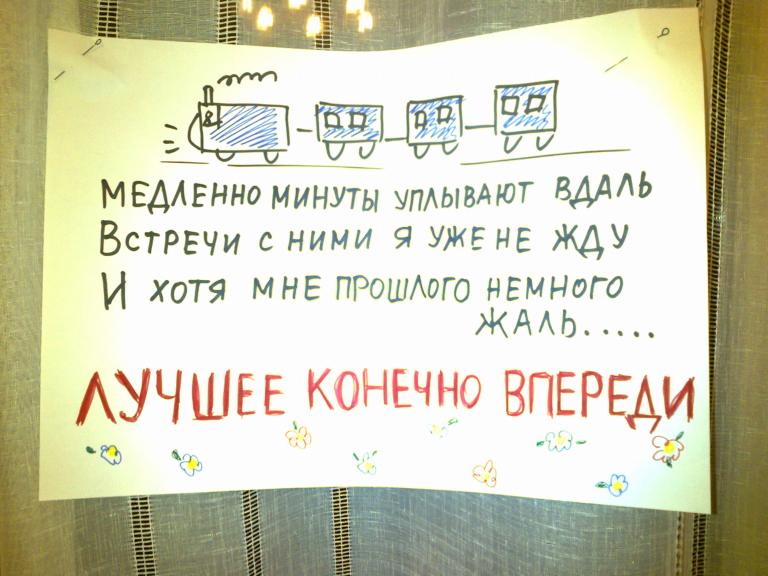 МЕДЛЕННО МИНУТЫ УПЛЫВАЮТ ВДАЛЬ
ВСТРЕЧИ С НИМИ Я УЖЕ НЕ ЖДУ
И ХОТЯ МНЕ ПРОШЛОГО НЕМНОГО
ЖАЛЬ.....
ЛУЧШЕЕ КОНЕЧНО ВПЕРЕДИ